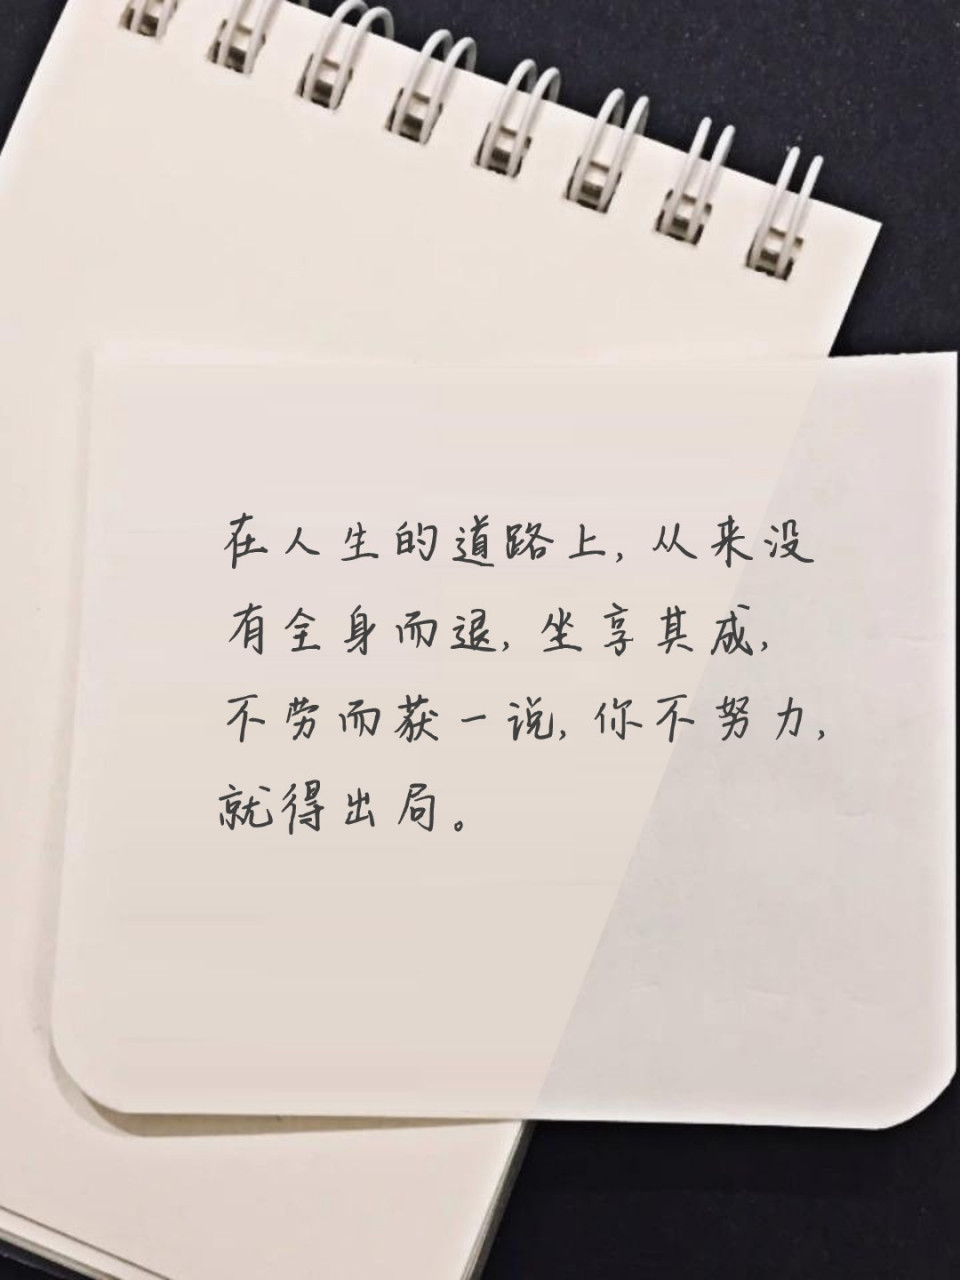 在人生的道路上,从来没
有全身而退,坐享其成,
不劳而获一说,你不努力,
就得出局。